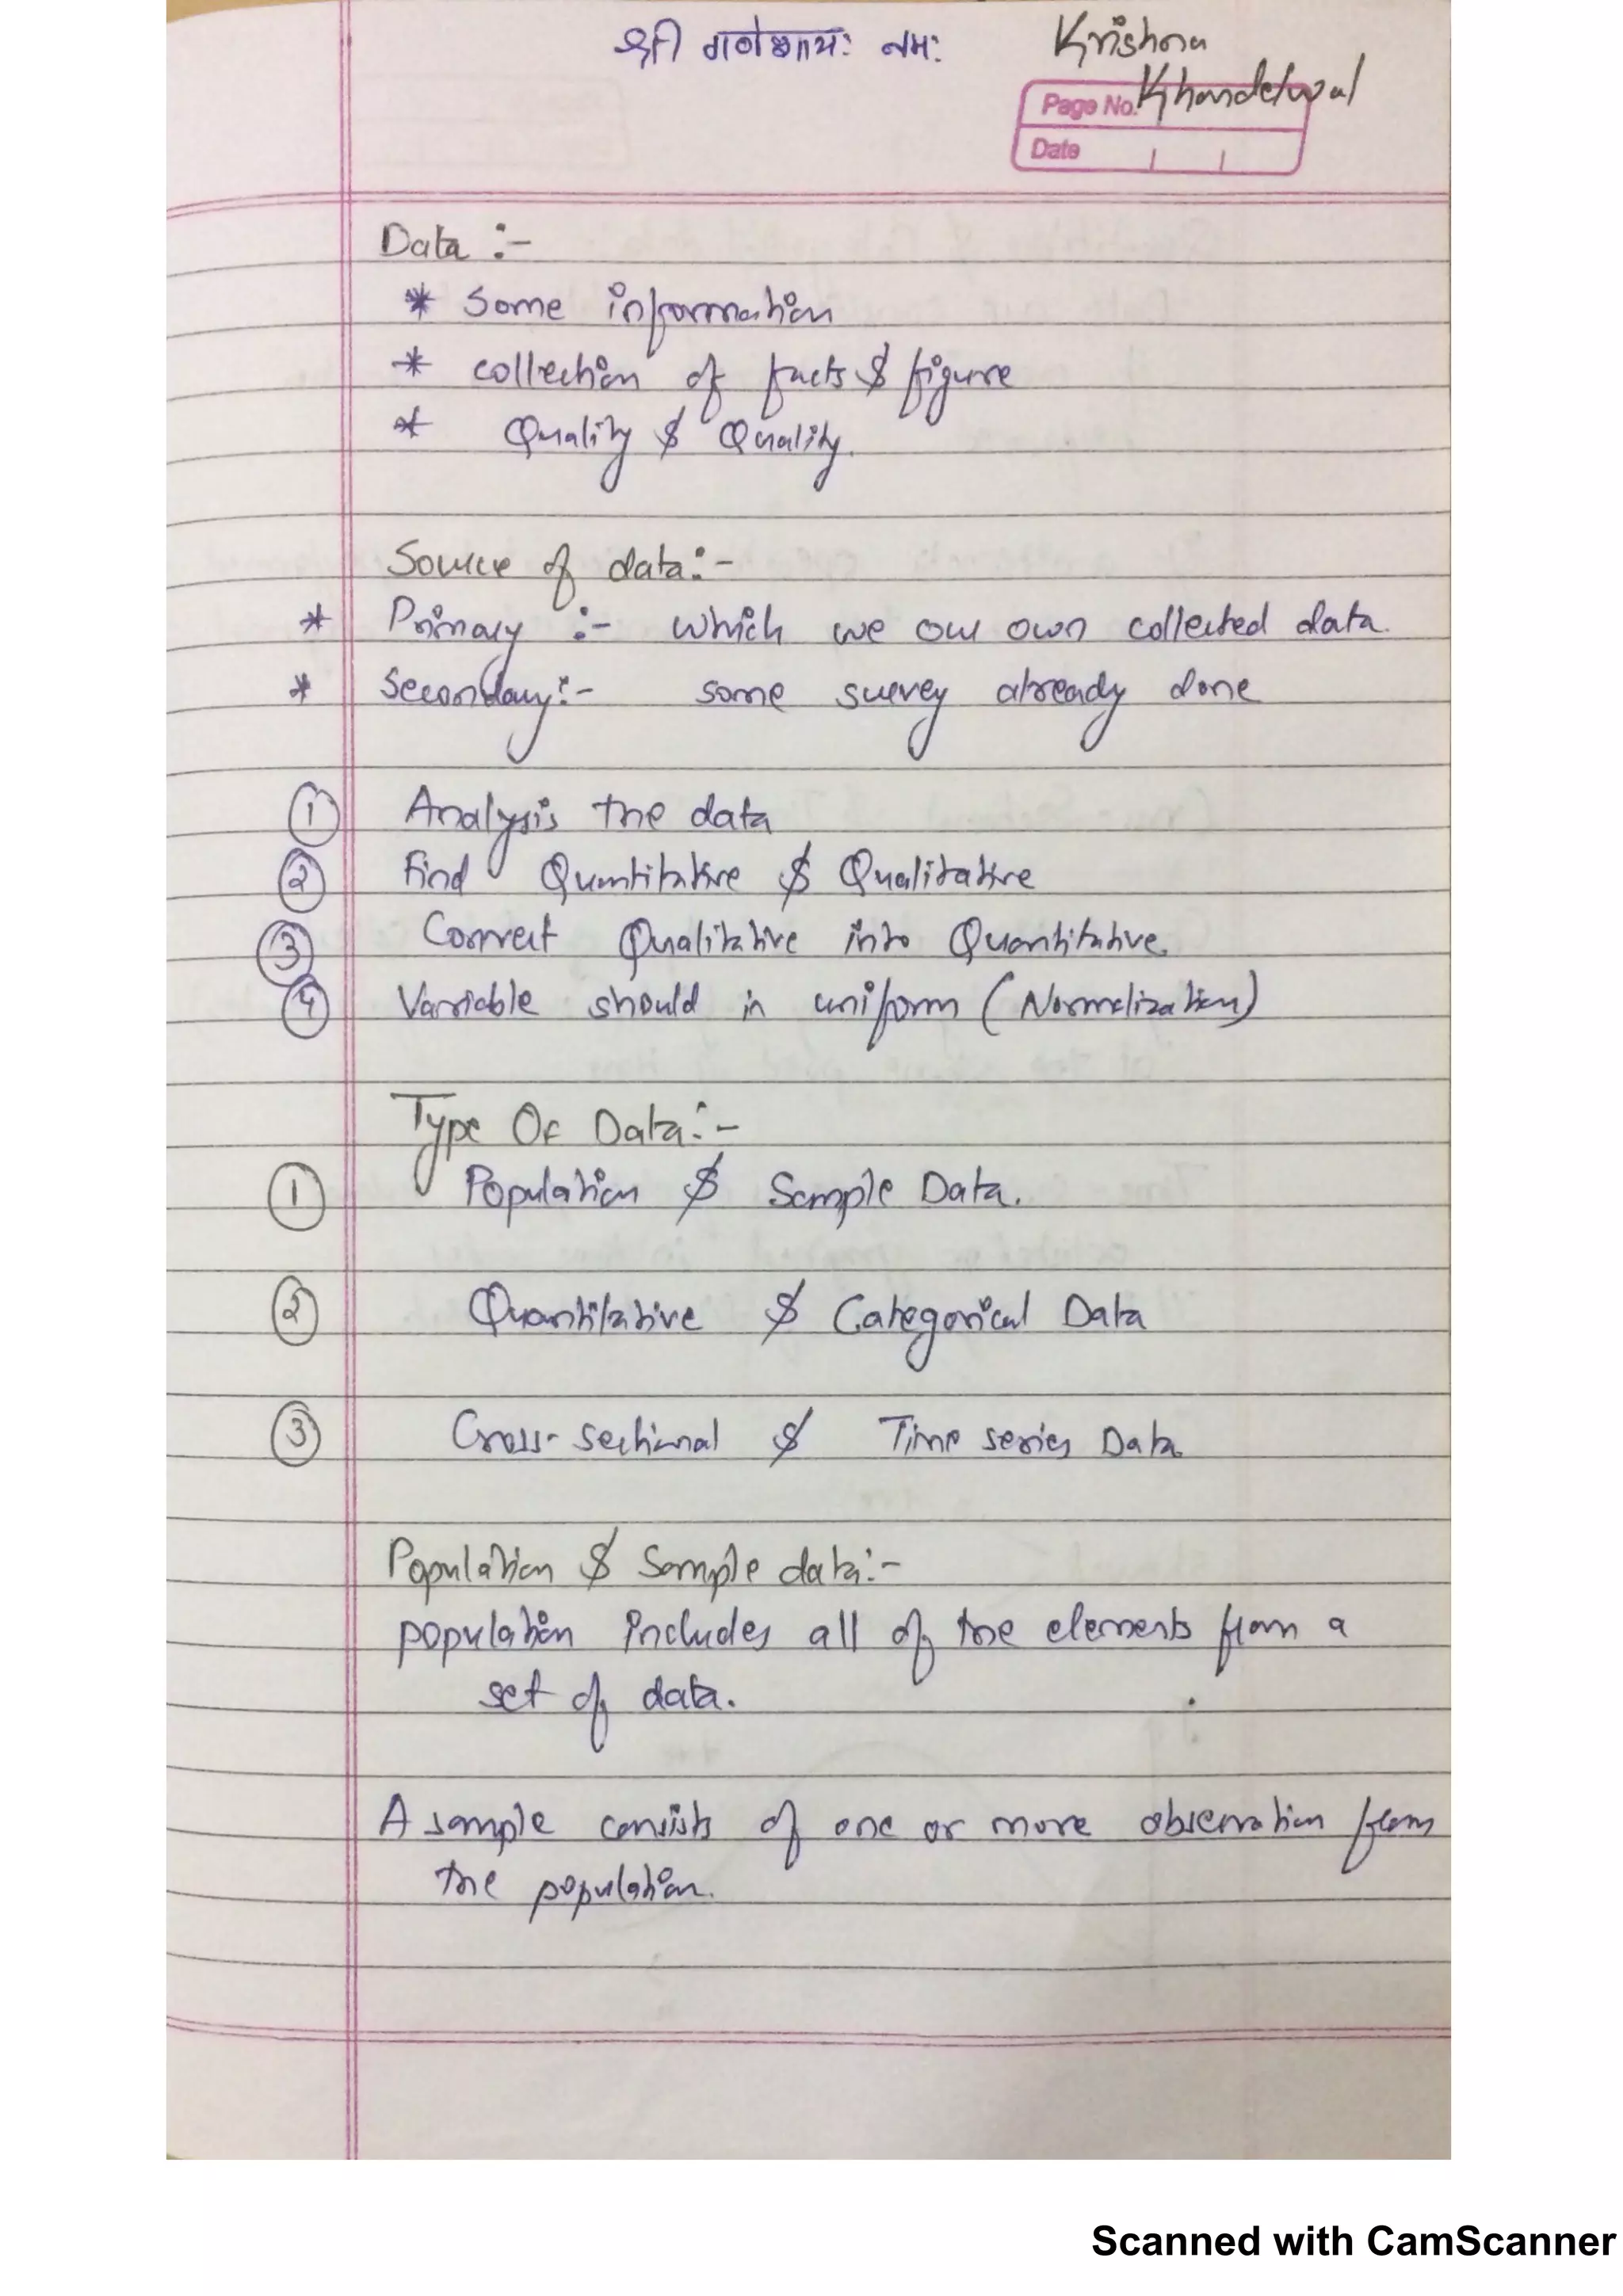 श्री गणेशायः नमः
Krishna
Khandelwal
Page No.
Date
Data :-
* Some information
* collection of facts & figure
* Quality & Quality.
Source of data:-
* Primary :- which we our own collected data.
* Secondary:- some survey already done
① Analysis the data
② Find Quantitative & Qualitative
③ Convert Qualitative into Quantitative.
④ Variable should in uniform (Normalization)
Type Of Data:-
① Population & Sample Data.
② Quantitative & Categorical Data
③ Cross-sectional & Time series Data
Population & Sample data:-
population includes all of the elements from a
set of data.
A sample consists of one or more observation from
the population.
Scanned with CamScanner